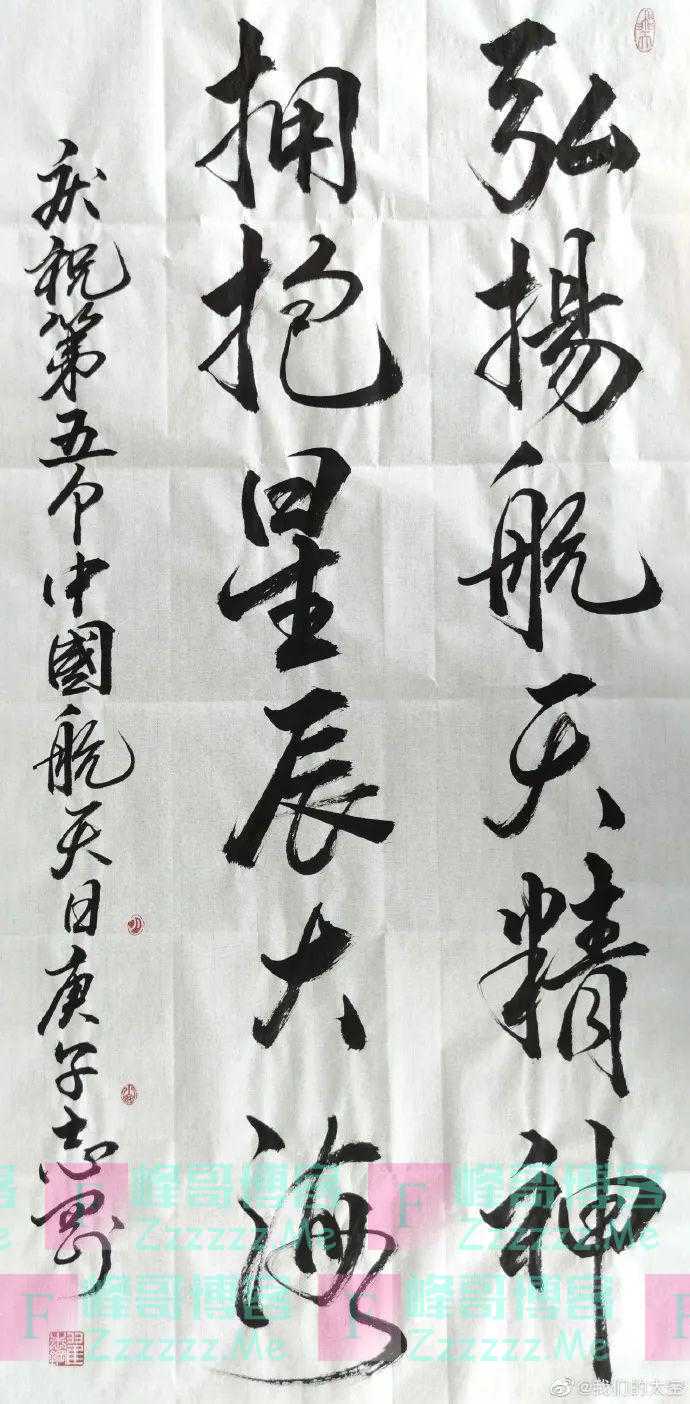 弘揚航天精神
拥抱星辰大海
庆祝第五个中國航天日庚子志剛
F 峰哥博客 F 峰哥博客
Zzzzzz.Me Zzzzzz.Me
F 峰哥博客 F 峰哥博客 F
Zzzzzz.Me Zzzzzz.Me
@我们的太空